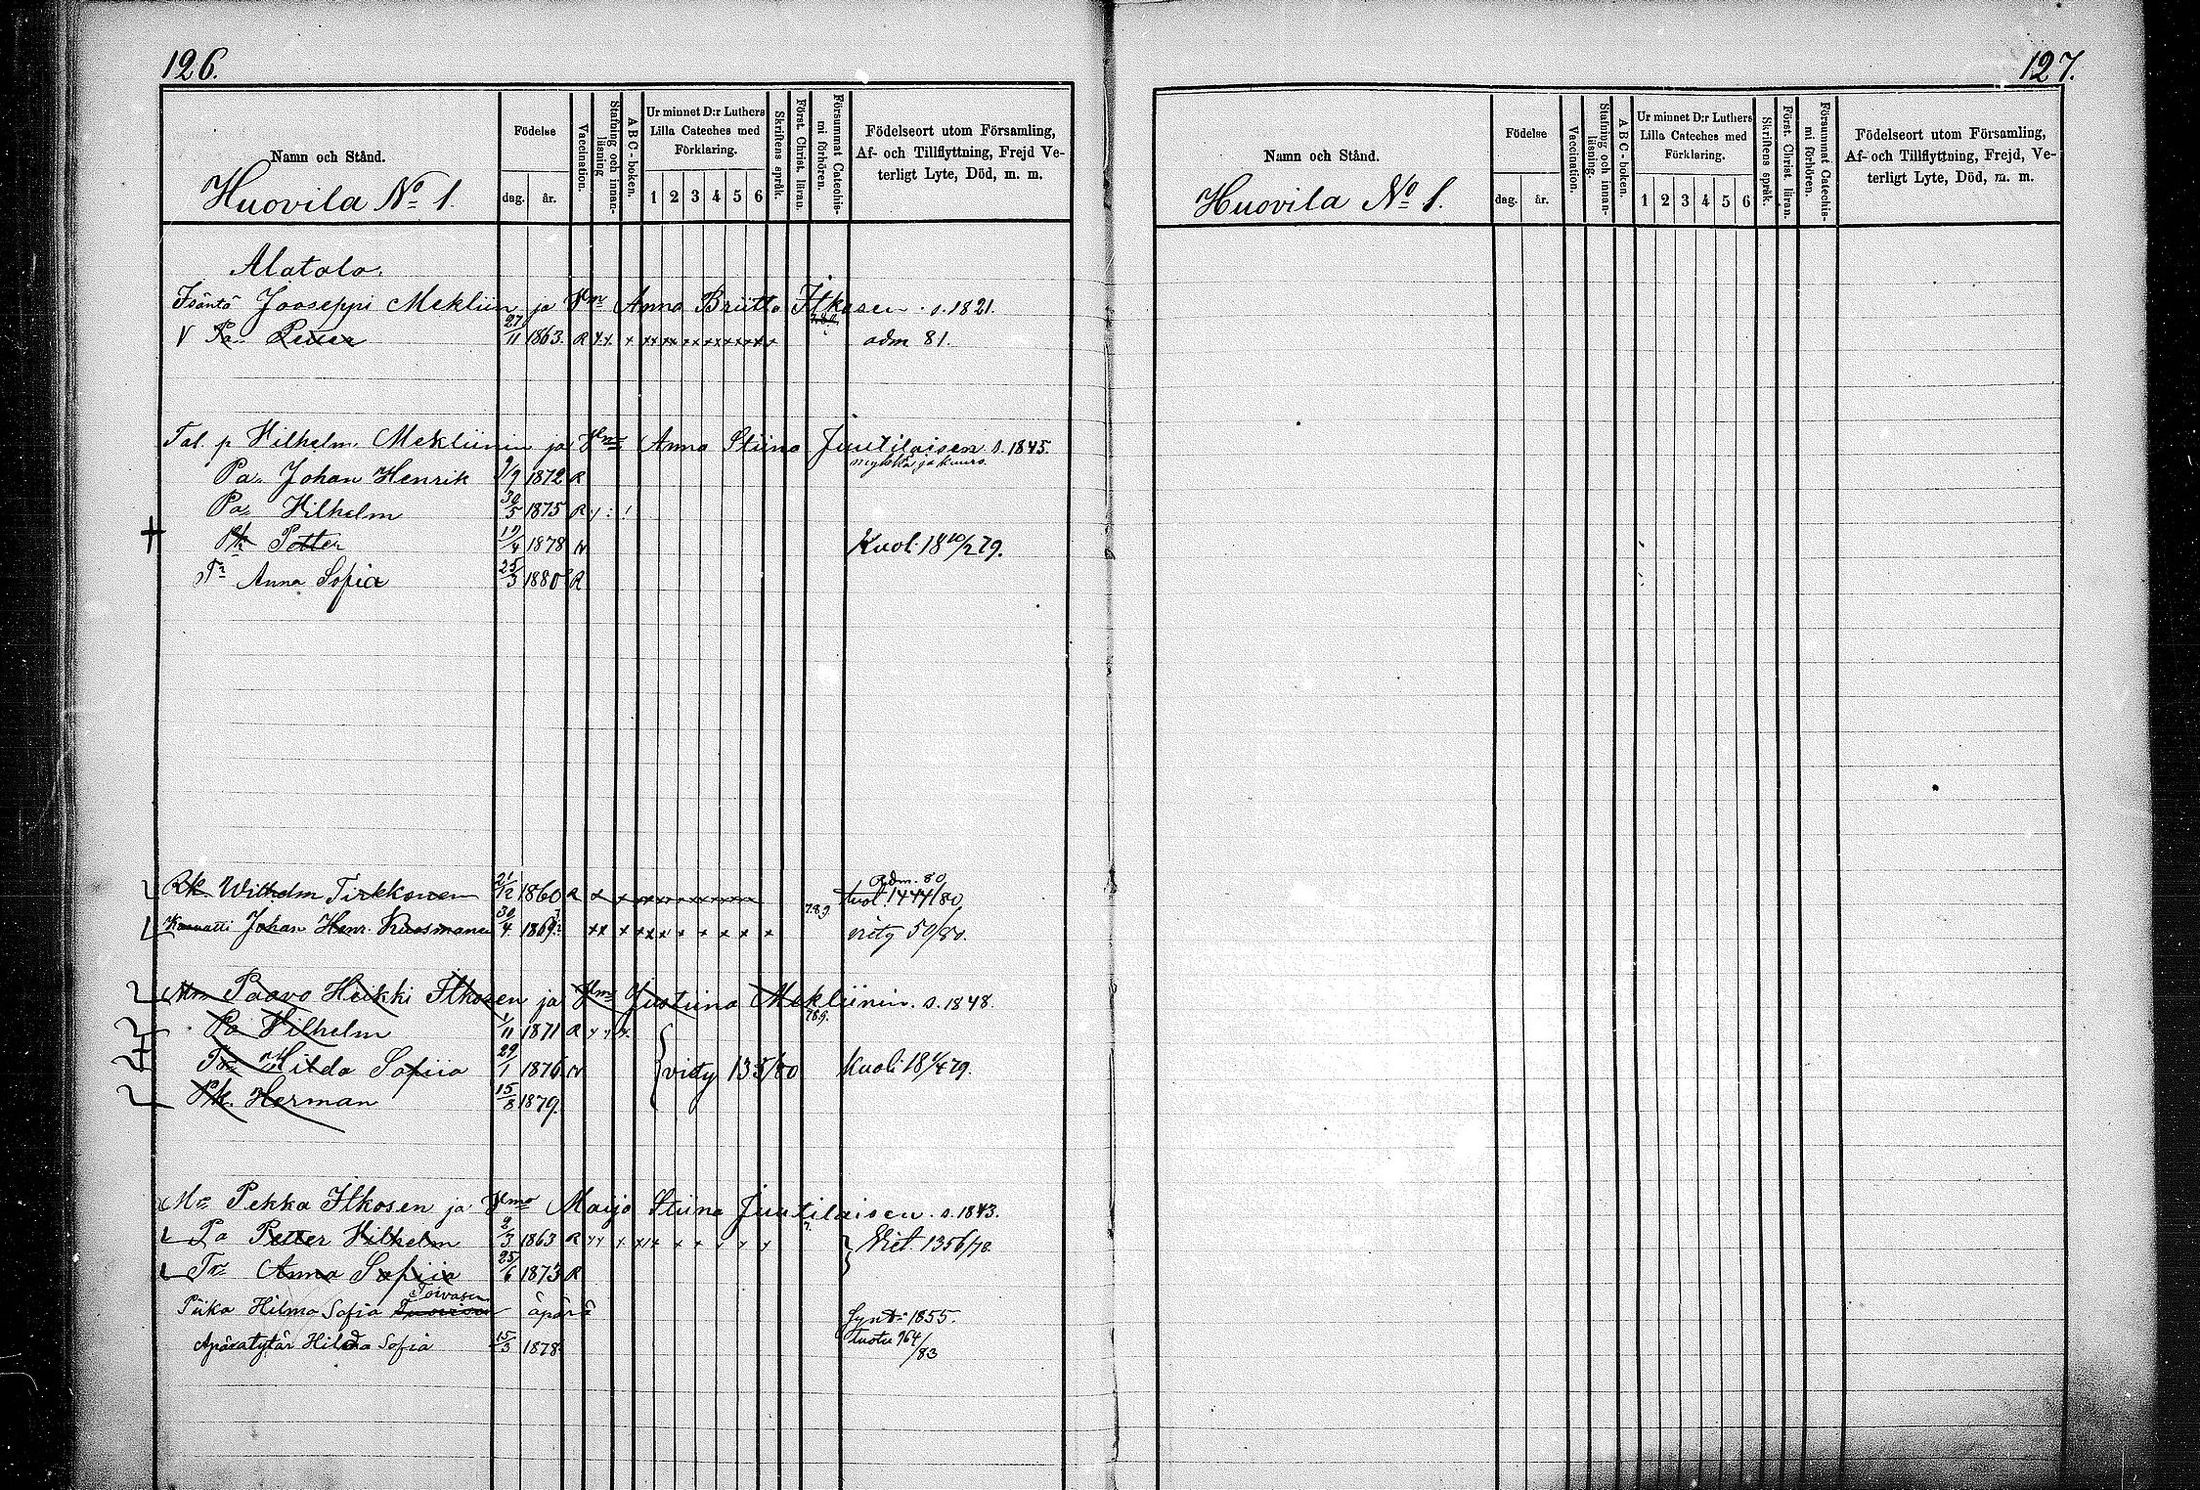 126.
Namn och Stånd.
Huovila No 1.
Födelse
dag. år.
Vaccination.
Stafning och innan-
läsning
A B C-boken.
Ur minnet D:r Luthers
Lilla Cateches med
Förklaring.
1 2 3 4 5 6
Skriftens språk.
Först. Christ. läran.
Försummat Catechis-
mi förhören.
Födelseort utom Församling,
Af- och Tillflyttning, Frejd Ve-
terligt Lyte, Död, m. m.
Alatalo.
Isäntä Jooseppi Mekliin ja Vmo Anna Briitta Itkosen s. 1821.
V Pa Petter 27/11 1863. R x x x xx xx x x x x x x x adm 81.
Tal. p Vilhelm Mekliinin ja Vmo Anna Stiina Juutilaisen s. 1845.
Pa Johan Henrik 9/9 1872 R
Pa Vilhelm 30/5 1875 R
+ Pk Petter 17/4 1878 N Kuol. 18 10/2 79.
Tr Anna Sofia 25/3 1880 R
Rk Wilhelm Tirkkonen 21/12 1860 R adm. 80
tuol. 1444/80.
Johan Henr. Kuosmanen 30/4 1869 xx x xxx x x x x x 789 50/80.
Paavo Heikki Itkosen ja Vmo Justiina Mekliinin. s. 1848.
789.
Pa Vilhelm 1/11 1871 R x x x
Tr Hilda Sofiia 29/1 1876 N vidy 135/80 Kuoli 18 79.
Pk. Herman 15/8 1879.
Mr Pekka Itkosen ja Vmo Maija Stiina Juutilaisen. s. 1843.
Pa Petter Vilhelm 2/3 1863 R xx x xx x x x x x Viet. 1356/78
Tr Anna Sofiia 25/6 1873 R
Toivasen
Piika Hilma Sofia äpärä Synt: 1855.
Äpärätytär Hilda Sofia 15/3 1878 tuotu 964/83
127.
Namn och Stånd.
Huovila No 1.
Födelse
dag. år.
Vaccination.
Stafning och innan-
läsning.
A B C-boken.
Ur minnet D:r Luthers
Lilla Cateches med
Förklaring.
1 2 3 4 5 6
Skriftens språk.
Först. Christ. läran.
Försummat Catechis-
mi förhören.
Födelseort utom Församling,
Af- och Tillflyttning, Frejd, Ve-
terligt Lyte, Död, m. m.